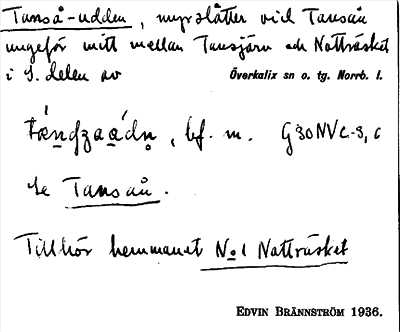 Tanså-udden, myrslåtter vid Tansån
ungefär mitt mellan Tansjärn och Nattträsket
i S. delen av Överkalix sn o. tg. Norrb. l.
bf. m. G30NVc-3,6
Se Tansån.
Tillhör hemmanet No 1 Nattträsket
EDVIN BRÄNNSTRÖM 1936.